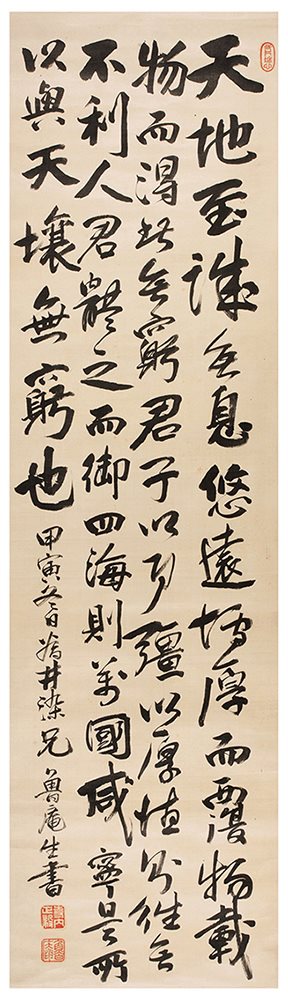 天地至誠無息悠遠博厚而覆物載
物而得此無窮君子以自彊以厚往無
不利人君體之而御四海則萬國咸寧是所
以與天壤無窮也 甲寅冬日為井染兄 魯庵生書